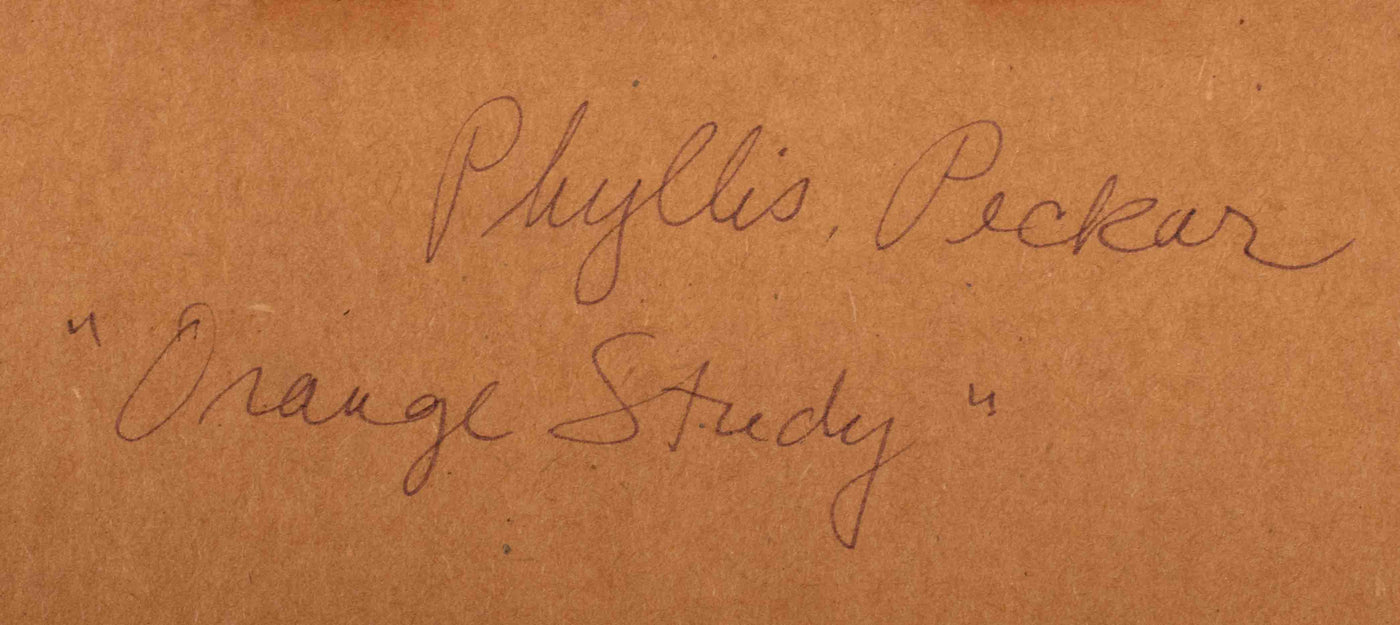 Phyllis, Peckar
"Orange Study"